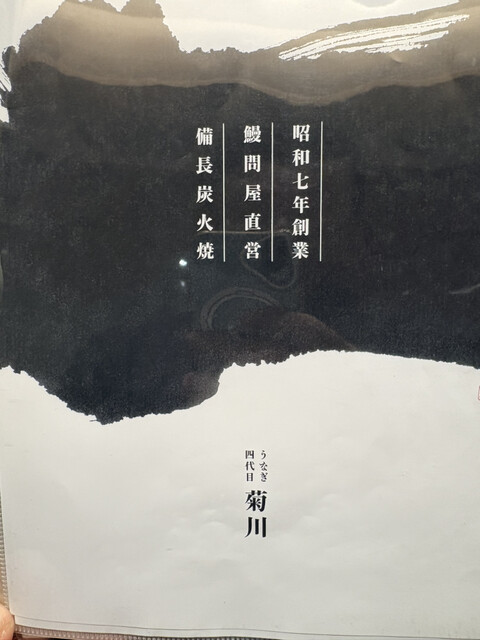 昭和七年創業
鰻問屋直営
備長炭火焼
うなぎ
四代目
菊川